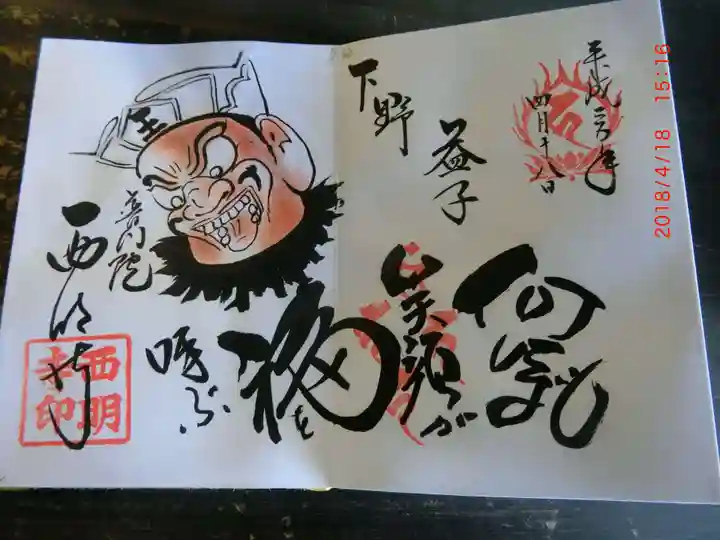 平成三十年
四月十八日
下野
益子
笑顔が
福を
呼ぶ
王
普門院
西明寺
西明
寺印
2018/4/18 15:16